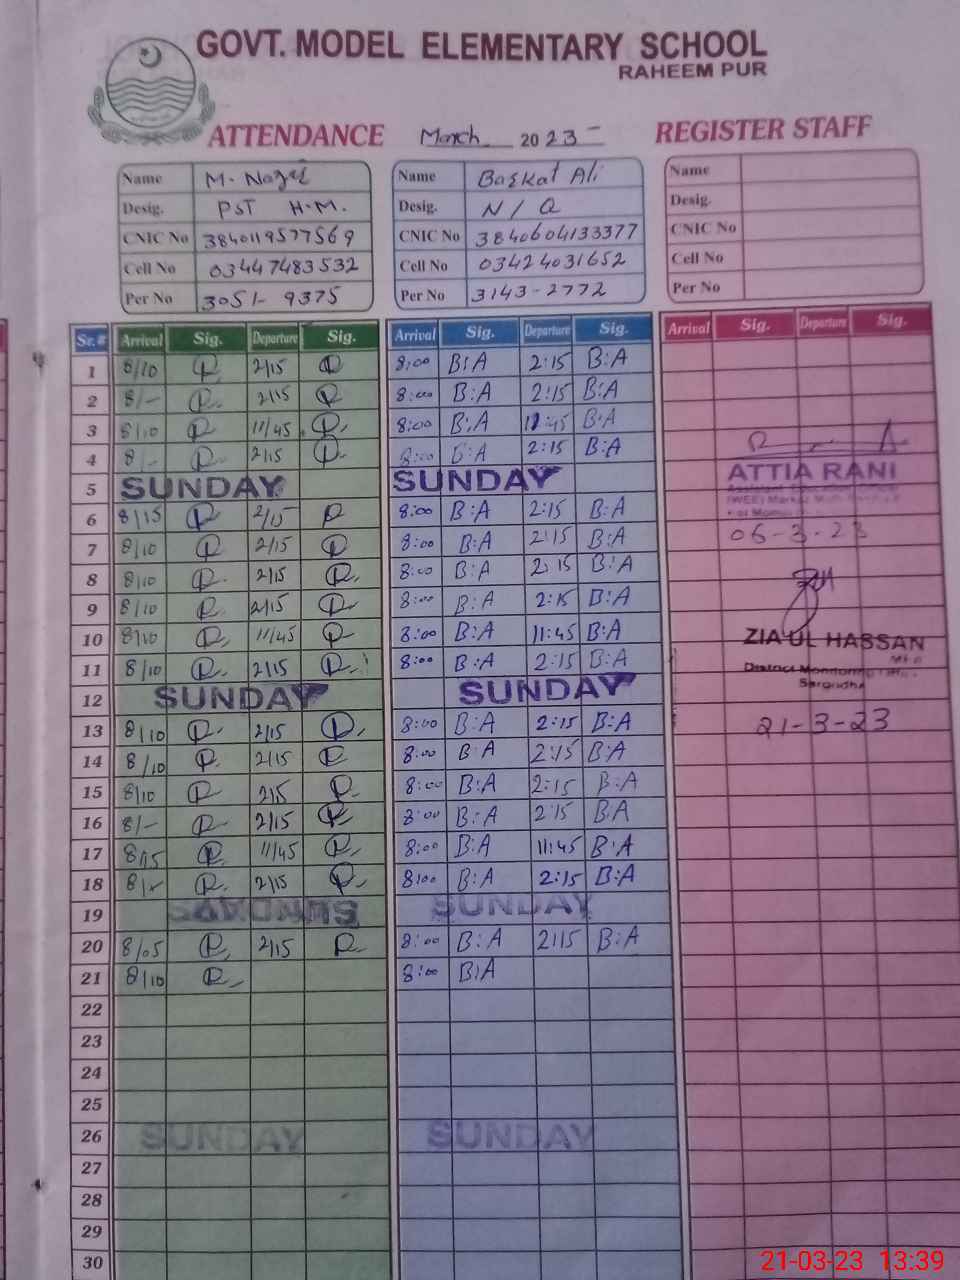 GOVT. MODEL ELEMENTARY SCHOOL
RAHEEM PUR
ATTENDANCE March 2023 REGISTER STAFF
Name M. Nazir Name Barkat Ali Name
Desig. PST H.M. Desig. N/Q Desig.
CNIC No 3840119577569 CNIC No 3840604133377 CNIC No
Cell No 03447483532 Cell No 03424031652 Cell No
Per No 3051-9375 Per No 3143-2772 Per No
Sr.# Arrival Sig. Departure Sig. Arrival Sig. Departure Sig. Arrival Sig. Departure Sig.
1 8/10 2/15 8:00 B:A 2:15 B:A
2 8/- 2/15 8:00 B:A 2:15 B:A
3 8/10 11/45 8:00 B:A :45 B:A
4 8/- 2/15 8:00 B:A 2:15 B:A
5 SUNDAY SUNDAY ATTIA RANI
6 8/15 2/15 8:00 B:A 2:15 B:A
7 8/10 2/15 8:00 B:A 2:15 B:A 06-3-23
8 8/10 2/15 8:00 B:A 2:15 B:A
9 8/10 2/15 8:00 B:A 2:15 B:A
10 8/10 11/45 8:00 B:A 11:45 B:A ZIA'UL HASSAN
11 8/10 2/15 8:00 B:A 2:15 B:A District Monitoring
Sargodha
12 SUNDAY SUNDAY
13 8/10 2/15 8:00 B:A 2:15 B:A 21-3-23
14 8/10 2/15 8:00 B:A 2:15 B:A
15 8/10 2/15 8:00 B:A 2:15 B:A
16 8/- 2/15 8:00 B:A 2:15 B:A
17 8/15 11/45 8:00 B:A 11:45 B:A
18 8/- 2/15 8:00 B:A 2:15 B:A
19 SUNDAY SUNDAY
20 8/05 2/15 8:00 B:A 2:15 B:A
21 8/10 8:00 B:A
22
23
24
25
26 SUNDAY SUNDAY
27
28
29
30
21-03-23 13:39